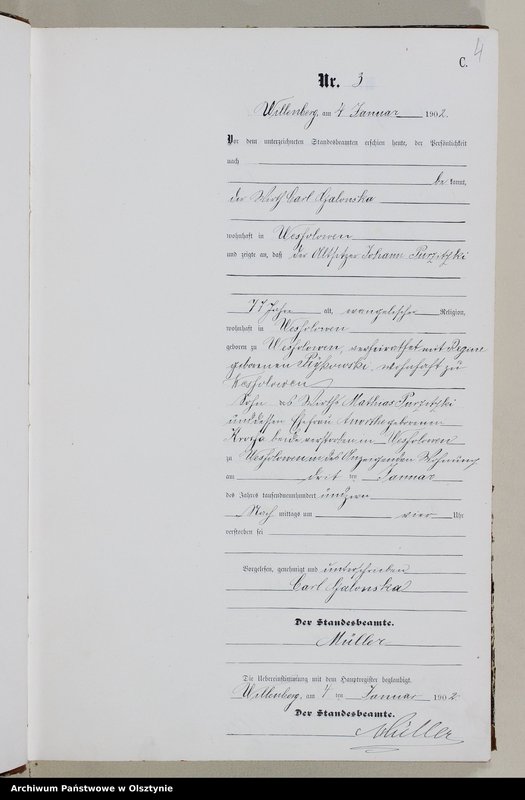 4
C.
Nr. 3
Willenberg, am 4 Januar 1902.
Vor dem unterzeichneten Standesbeamten erschien heute, der Persönlichkeit
nach
be kannt,
der Wirth Carl Galonska
wohnhaft in Wessolowen
und zeigte an, daß der Altsitzer Johann
77 Jahre alt, evangelischer Religion,
wohnhaft in Wessolowen
geboren zu Wessolowen, verheirathet mit Regine
geborenen, wohnhaft zu
Wessolowen
Sohn des Wirths Mathias
und dessen Ehefrau geborenen
beide verstorben in Wessolowen
zu Wessolowen in des Anzeigenden Wohnung
am ten Januar
des Jahres tausendneunhundert und zwei
Nach mittags um vier Uhr
verstorben sei
Vorgelesen, genehmigt und unterschrieben
Carl Galonska
Der Standesbeamte.
Müller
Die Uebereinstimmung mit dem Hauptregister beglaubigt.
Willenberg, am 4 ten Januar 1902
Der Standesbeamte.
Müller
Archiwum Państwowe w Olsztynie